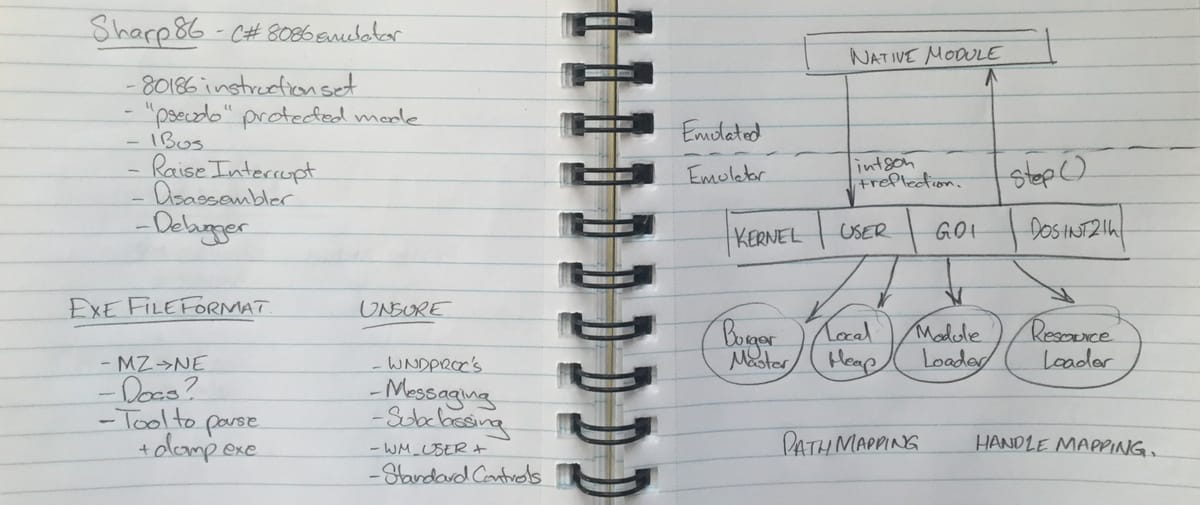 Sharp86 - C# 8086 emulator
- 80186 instruction set
- "pseudo" protected mode
- IBus
- Raise Interrupt
- Disassembler
- Debugger
EXE FILE FORMAT
- MZ→NE
- Docs?
- Tool to parse
+ dump exe
UNSURE
- WNDPROC's
- Messaging
- Subclassing
- WM_USER +
- Standard Controls
NATIVE MODULE
Emulated
Emulator
int 80h
+ reflection.
step()
KERNEL
USER
GDI
DOS INT 21h
Burger
Master
Local
Heap
Module
Loader
Resource
Loader
PATH MAPPING
HANDLE MAPPING.